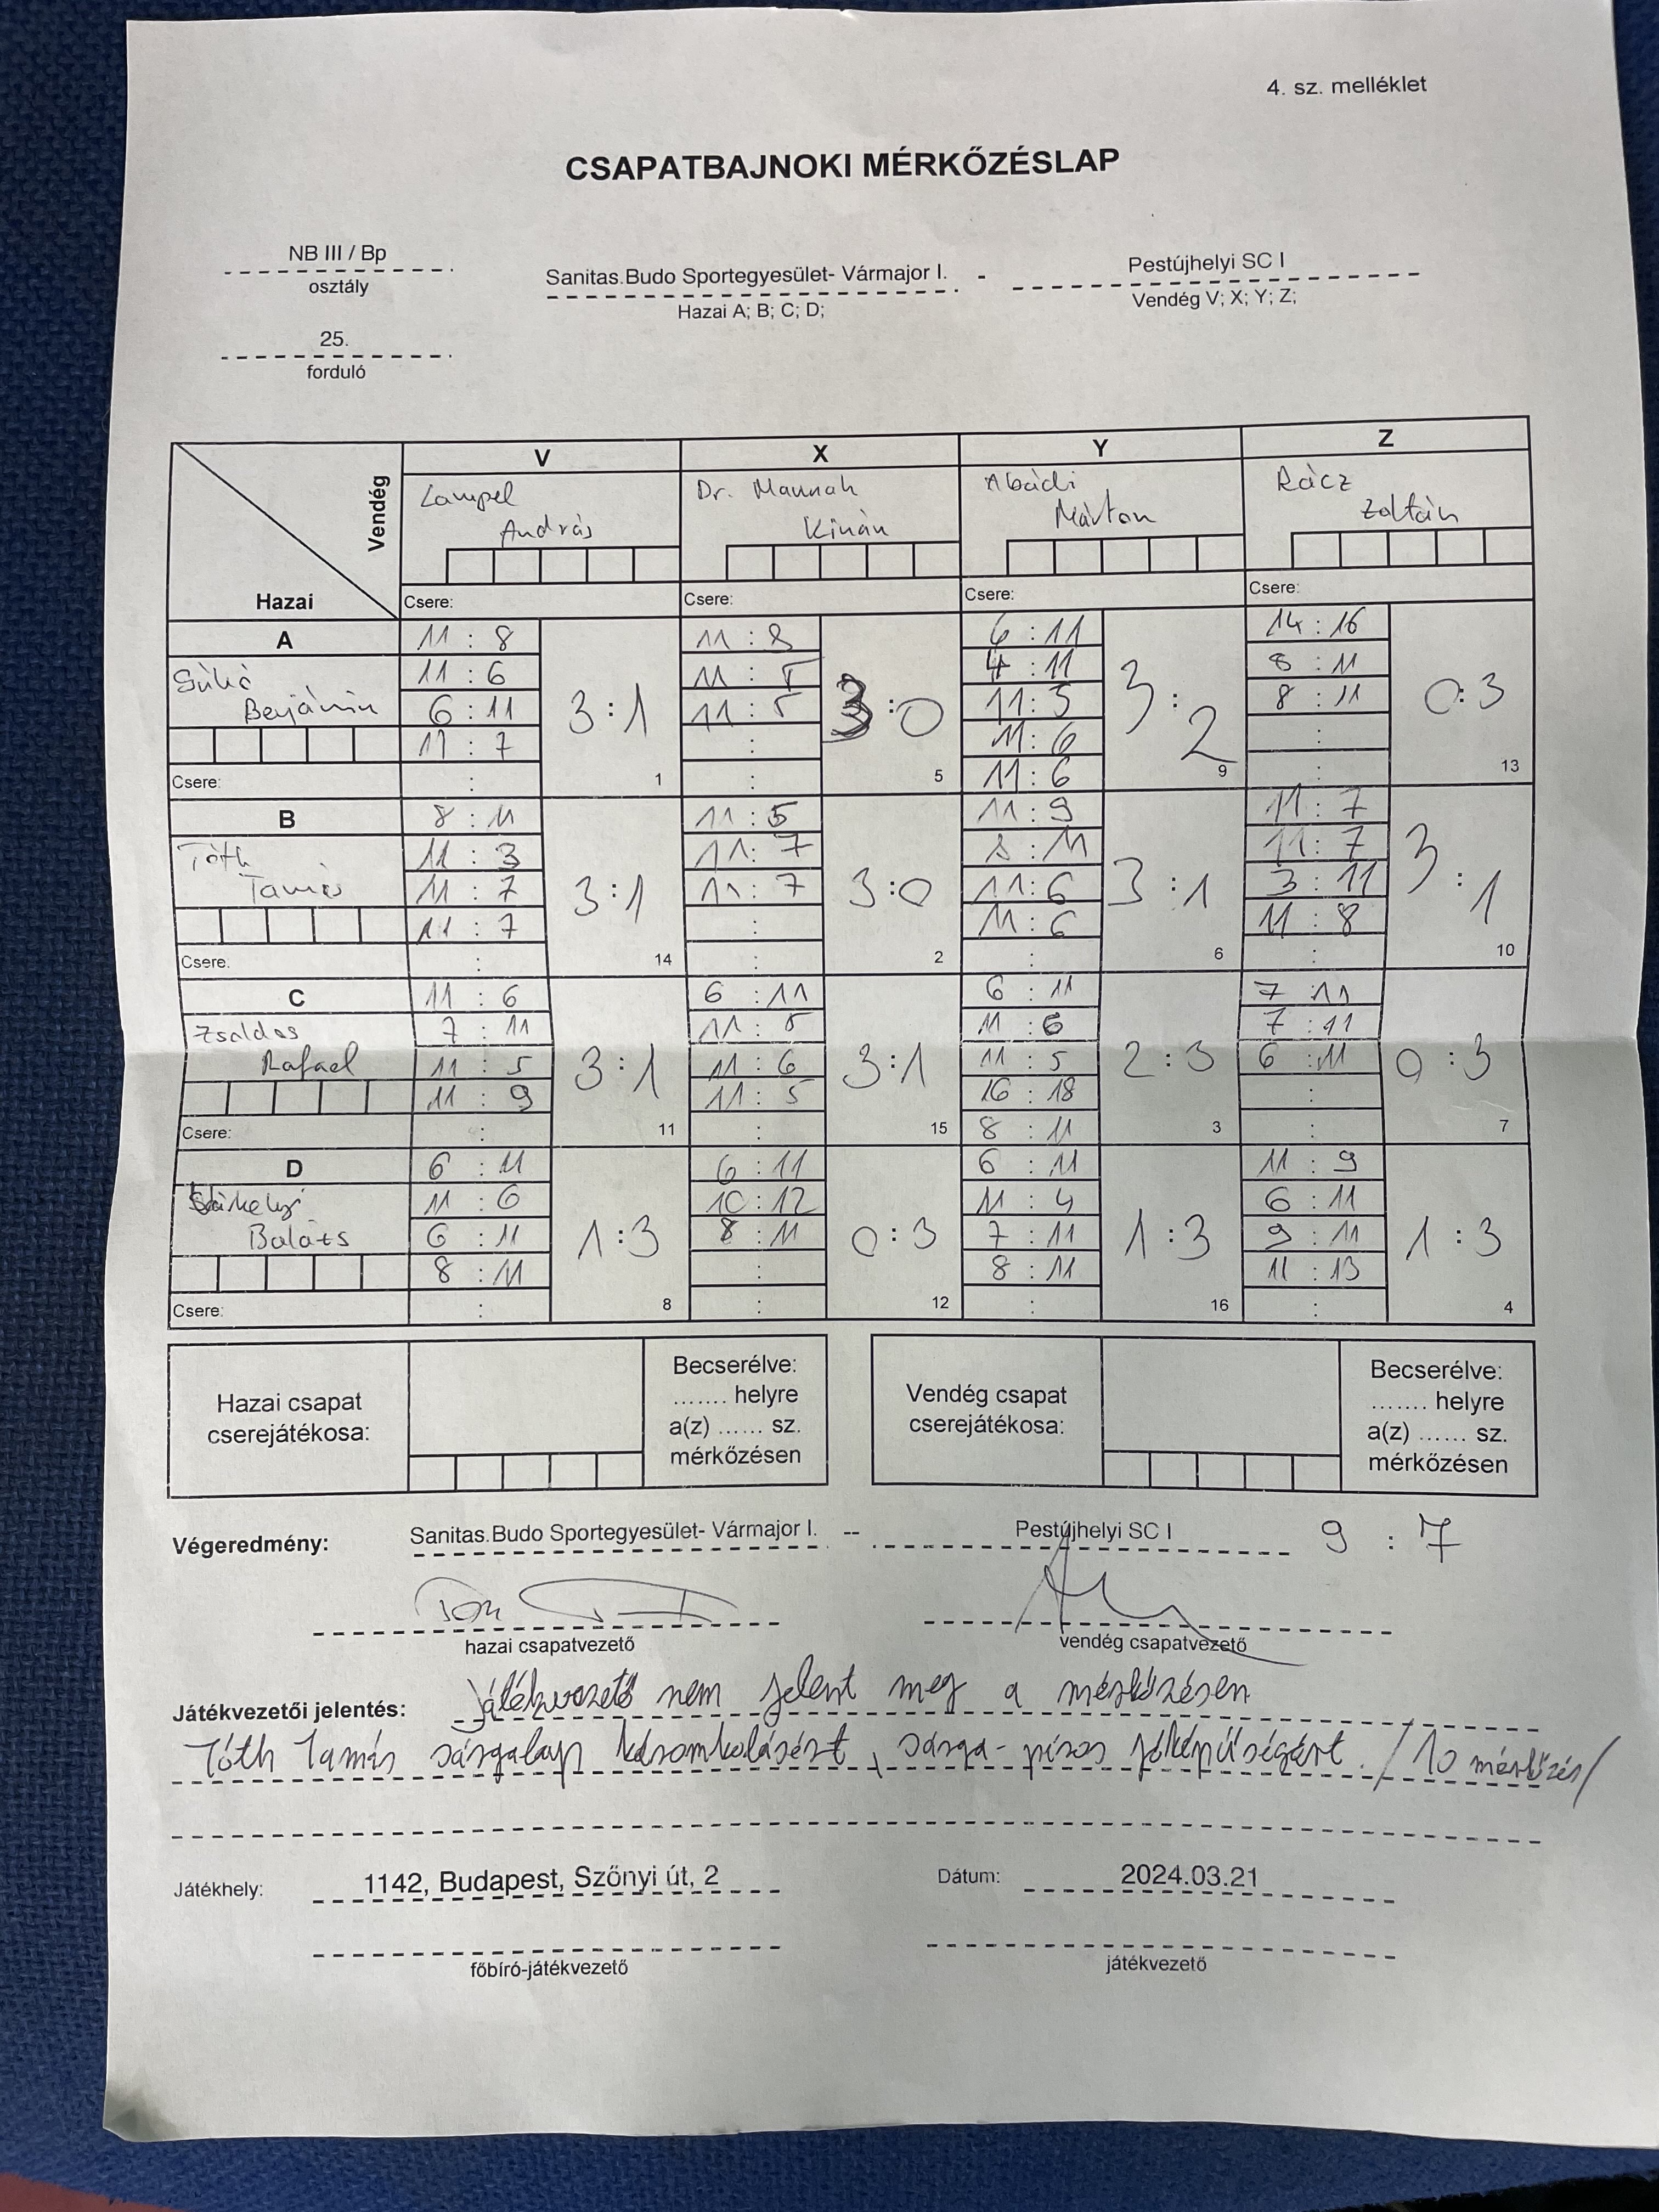 4. sz. melléklet
CSAPATBAJNOKI MÉRKŐZÉSLAP
NB III / Bp
osztály
Sanitas.Budo Sportegyesület- Vármajor I. - Pestújhelyi SC I
Hazai A; B; C; D; Vendég V; X; Y; Z;
25.
forduló
Vendég
Hazai
V X Y Z
Lampel Dr. Mannah Abádi Rácz
András Kinán Márton Zoltán
Csere: Csere: Csere: Csere:
A 11 : 8 11 : 8 6 : 11 14 : 16
11 : 6 11 : 5 4 : 11 8 : 11
Benjámin 6 : 11 3 : 1 11 : 5 3 : 0 11 : 5 3 : 2 8 : 11 0 : 3
11 : 7 : 11 : 6 :
Csere: : 1 : 5 11 : 6 9 : 13
B 8 : 11 11 : 5 11 : 9 11 : 7
Tóth 11 : 3 11 : 7 8 : 11 11 : 7
Tamás 11 : 7 3 : 1 11 : 7 3 : 0 11 : 6 3 : 1 3 : 11 3 : 1
11 : 7 : 11 : 6 11 : 8
Csere. : 14 : 2 : 6 : 10
C 11 : 6 6 : 11 6 : 11 7 : 11
Zsoldos 7 : 11 11 : 5 11 : 6 7 : 11
Rafael 11 : 5 3 : 1 11 : 6 3 : 1 11 : 5 2 : 3 6 : 11 0 : 3
11 : 9 11 : 5 16 : 18 :
Csere: : 11 : 15 8 : 11 3 : 7
D 6 : 11 6 : 11 6 : 11 11 : 9
11 : 6 10 : 12 11 : 4 6 : 11
Balázs 6 : 11 1 : 3 8 : 11 0 : 3 7 : 11 1 : 3 9 : 11 1 : 3
8 : 11 : 8 : 11 11 : 13
Csere: : 8 : 12 : 16 : 4
Hazai csapat
cserejátékosa:
Becserélve:
....... helyre
a(z) ...... sz.
mérkőzésen
Vendég csapat
cserejátékosa:
Becserélve:
....... helyre
a(z) ...... sz.
mérkőzésen
Végeredmény: Sanitas.Budo Sportegyesület- Vármajor I. -- Pestújhelyi SC I 9 : 7
hazai csapatvezető vendég csapatvezető
Játékvezetői jelentés: Játékvezető nem jelent meg a mérkőzésen
Tóth Tamás sárgalap káromkodásért, sárga-piros /10 mérkőzés/
Játékhely: 1142, Budapest, Szőnyi út, 2 Dátum: 2024.03.21
főbíró-játékvezető játékvezető